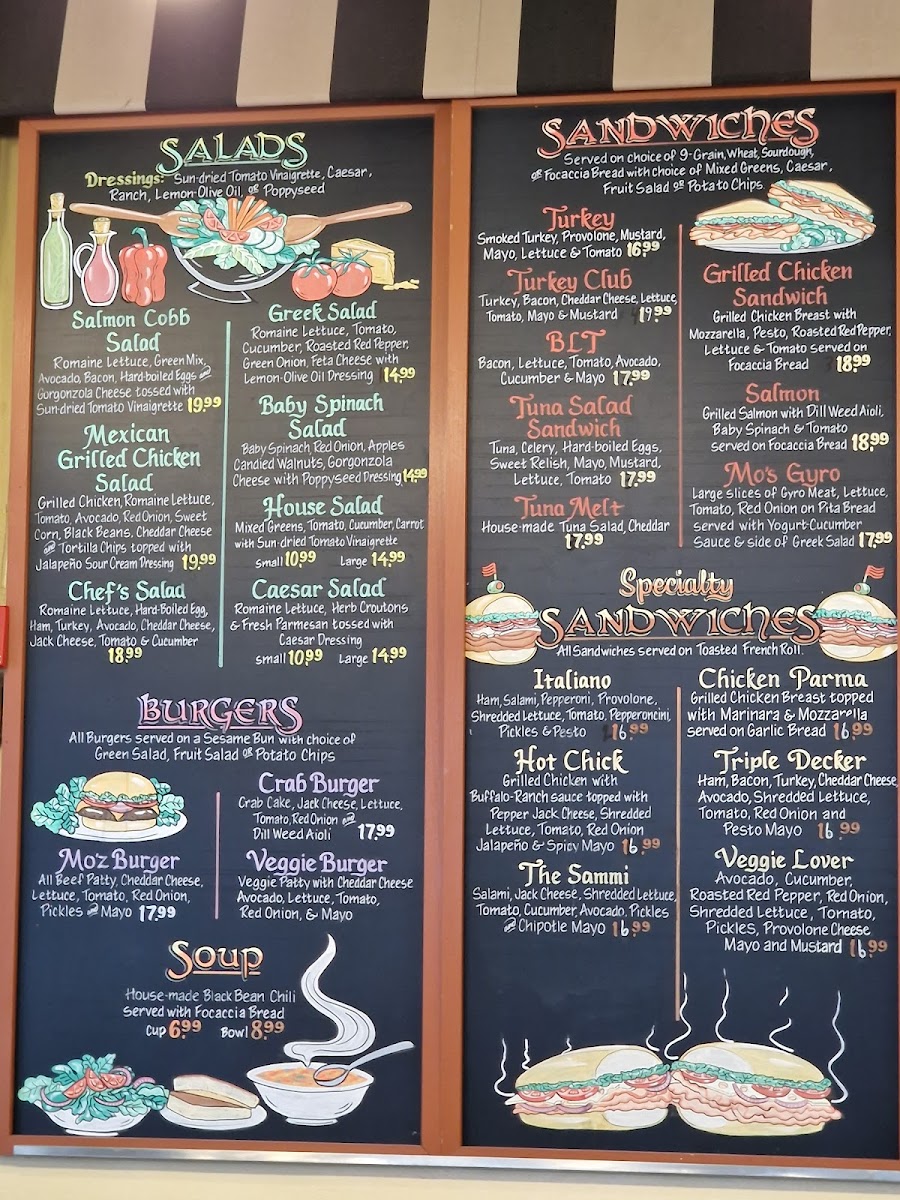 SALADS
Dressings: Sun-dried Tomato Vinaigrette, Caesar,
Ranch, Lemon-Olive Oil, or Poppyseed
Salmon Cobb
Salad
Romaine Lettuce, Green Mix,
Avocado, Bacon, Hard-boiled Eggs and
Gorgonzola Cheese tossed with
Sun-dried Tomato Vinaigrette 19.99
Mexican
Grilled Chicken
Salad
Grilled Chicken, Romaine Lettuce,
Tomato, Avocado, Red Onion, Sweet
Corn, Black Beans, Cheddar Cheese
and Tortilla Chips topped with
Jalapeño Sour Cream Dressing 19.99
Chef's Salad
Romaine Lettuce, Hard-Boiled Egg,
Ham, Turkey, Avocado, Cheddar Cheese,
Jack Cheese, Tomato & Cucumber
18.99
Greek Salad
Romaine Lettuce, Tomato,
Cucumber, Roasted Red Pepper,
Green Onion, Feta Cheese with
Lemon-Olive Oil Dressing 14.99
Baby Spinach
Salad
Baby Spinach, Red Onion, Apples
Candied Walnuts, Gorgonzola
Cheese with Poppyseed Dressing 14.99
House Salad
Mixed Greens, Tomato, Cucumber, Carrot
with Sun-dried Tomato Vinaigrette
Small 10.99 Large 14.99
Caesar Salad
Romaine Lettuce, Herb Croutons
& Fresh Parmesan tossed with
Caesar Dressing
Small 10.99 Large 14.99
BURGERS
All Burgers served on a Sesame Bun with choice of
Green Salad, Fruit Salad or Potato Chips
Mo'z Burger
All Beef Patty, Cheddar Cheese,
Lettuce, Tomato, Red Onion,
Pickles and Mayo 17.99
Crab Burger
Crab Cake, Jack Cheese, Lettuce,
Tomato, Red Onion and
Dill Weed Aioli 17.99
Veggie Burger
Veggie Patty with Cheddar Cheese
Avocado, Lettuce, Tomato,
Red Onion, & Mayo
Soup
House-made Black Bean Chili
Served with Focaccia Bread
Cup 6.99 Bowl 8.99
SANDWICHES
Served on choice of 9-Grain, Wheat, Sourdough,
or Focaccia Bread with choice of Mixed Greens, Caesar,
Fruit Salad or Potato Chips
Turkey
Smoked Turkey, Provolone, Mustard,
Mayo, Lettuce & Tomato 16.99
Turkey Club
Turkey, Bacon, Cheddar Cheese, Lettuce,
Tomato, Mayo & Mustard 19.99
BLT
Bacon, Lettuce, Tomato, Avocado,
Cucumber & Mayo 17.99
Tuna Salad
Sandwich
Tuna, Celery, Hard-boiled Eggs,
Sweet Relish, Mayo, Mustard,
Lettuce, Tomato 17.99
Tuna Melt
House-made Tuna Salad, Cheddar
17.99
Grilled Chicken
Sandwich
Grilled Chicken Breast with
Mozzarella, Pesto, Roasted Red Pepper,
Lettuce & Tomato served on
Focaccia Bread 18.99
Salmon
Grilled Salmon with Dill Weed Aioli,
Baby Spinach & Tomato
served on Focaccia Bread 18.99
Mo's Gyro
Large slices of Gyro Meat, Lettuce,
Tomato, Red Onion on Pita Bread
served with Yogurt-Cucumber
Sauce & side of Greek Salad 17.99
Specialty
SANDWICHES
All Sandwiches served on Toasted French Roll
Italiano
Ham, Salami, Pepperoni, Provolone,
Shredded Lettuce, Tomato, Pepperoncini,
Pickles & Pesto 16.99
Hot Chick
Grilled Chicken with
Buffalo-Ranch sauce topped with
Pepper Jack Cheese, Shredded
Lettuce, Tomato, Red Onion
Jalapeño & Spicy Mayo 16.99
The Sammi
Salami, Jack Cheese, Shredded Lettuce,
Tomato, Cucumber, Avocado, Pickles
and Chipotle Mayo 16.99
Chicken Parma
Grilled Chicken Breast topped
with Marinara & Mozzarella
served on Garlic Bread 16.99
Triple Decker
Ham, Bacon, Turkey, Cheddar Cheese
Avocado, Shredded Lettuce,
Tomato, Red Onion and
Pesto Mayo 16.99
Veggie Lover
Avocado, Cucumber,
Roasted Red Pepper, Red Onion,
Shredded Lettuce, Tomato,
Pickles, Provolone Cheese
Mayo and Mustard 16.99